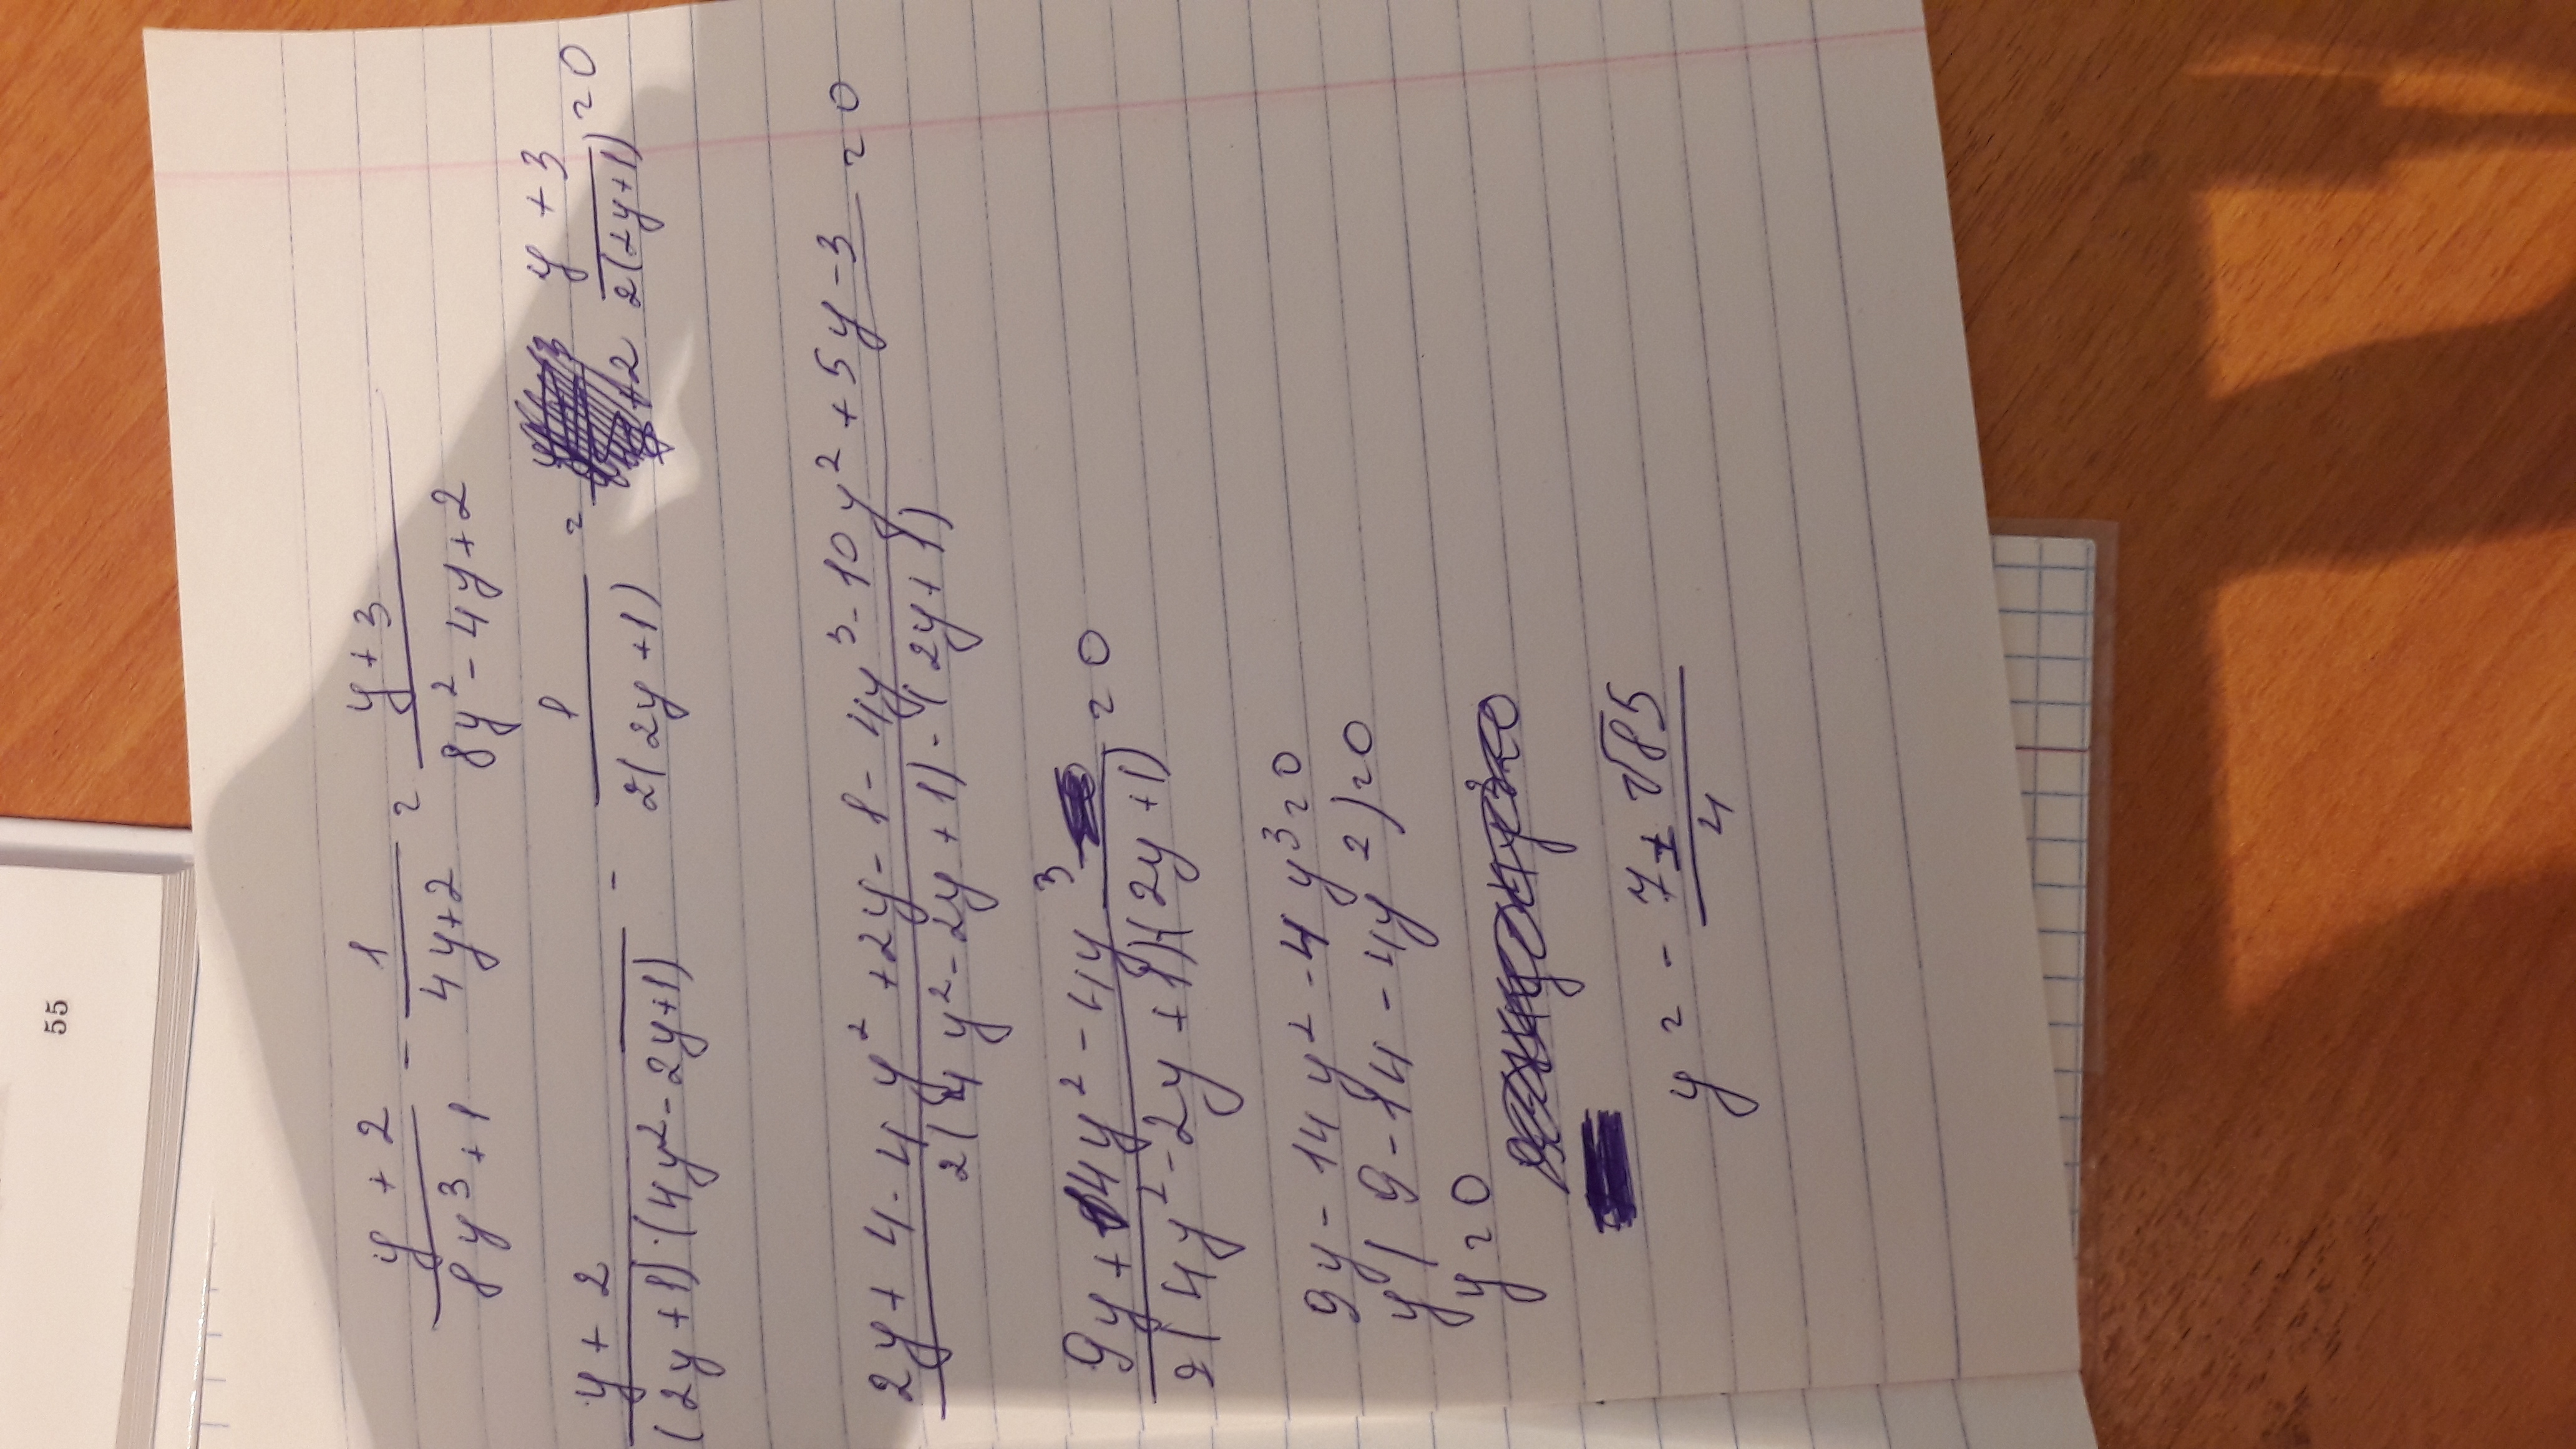 55
y + 2 / 8y³ + 1 - 1 / 4y + 2 = y + 3 / 8y² - 4y + 2
y + 2 / (2y + 1)·(4y² - 2y + 1) - 1 / 2(2y + 1) = y + 3 / 2(2y + 1) = 0
2y + 4 - 4y² + 2y - 1 - 4y³ - 10y² + 5y - 3 / 2(4y² - 2y + 1)·(2y + 1) = 0
9y + 14y² - 4y³ / 2(4y² - 2y + 1)(2y + 1) = 0
9y - 14y² - 4y³ = 0
y(9 - 14 - 4y²) = 0
y = 0
y = - 7 ± √85 / 4